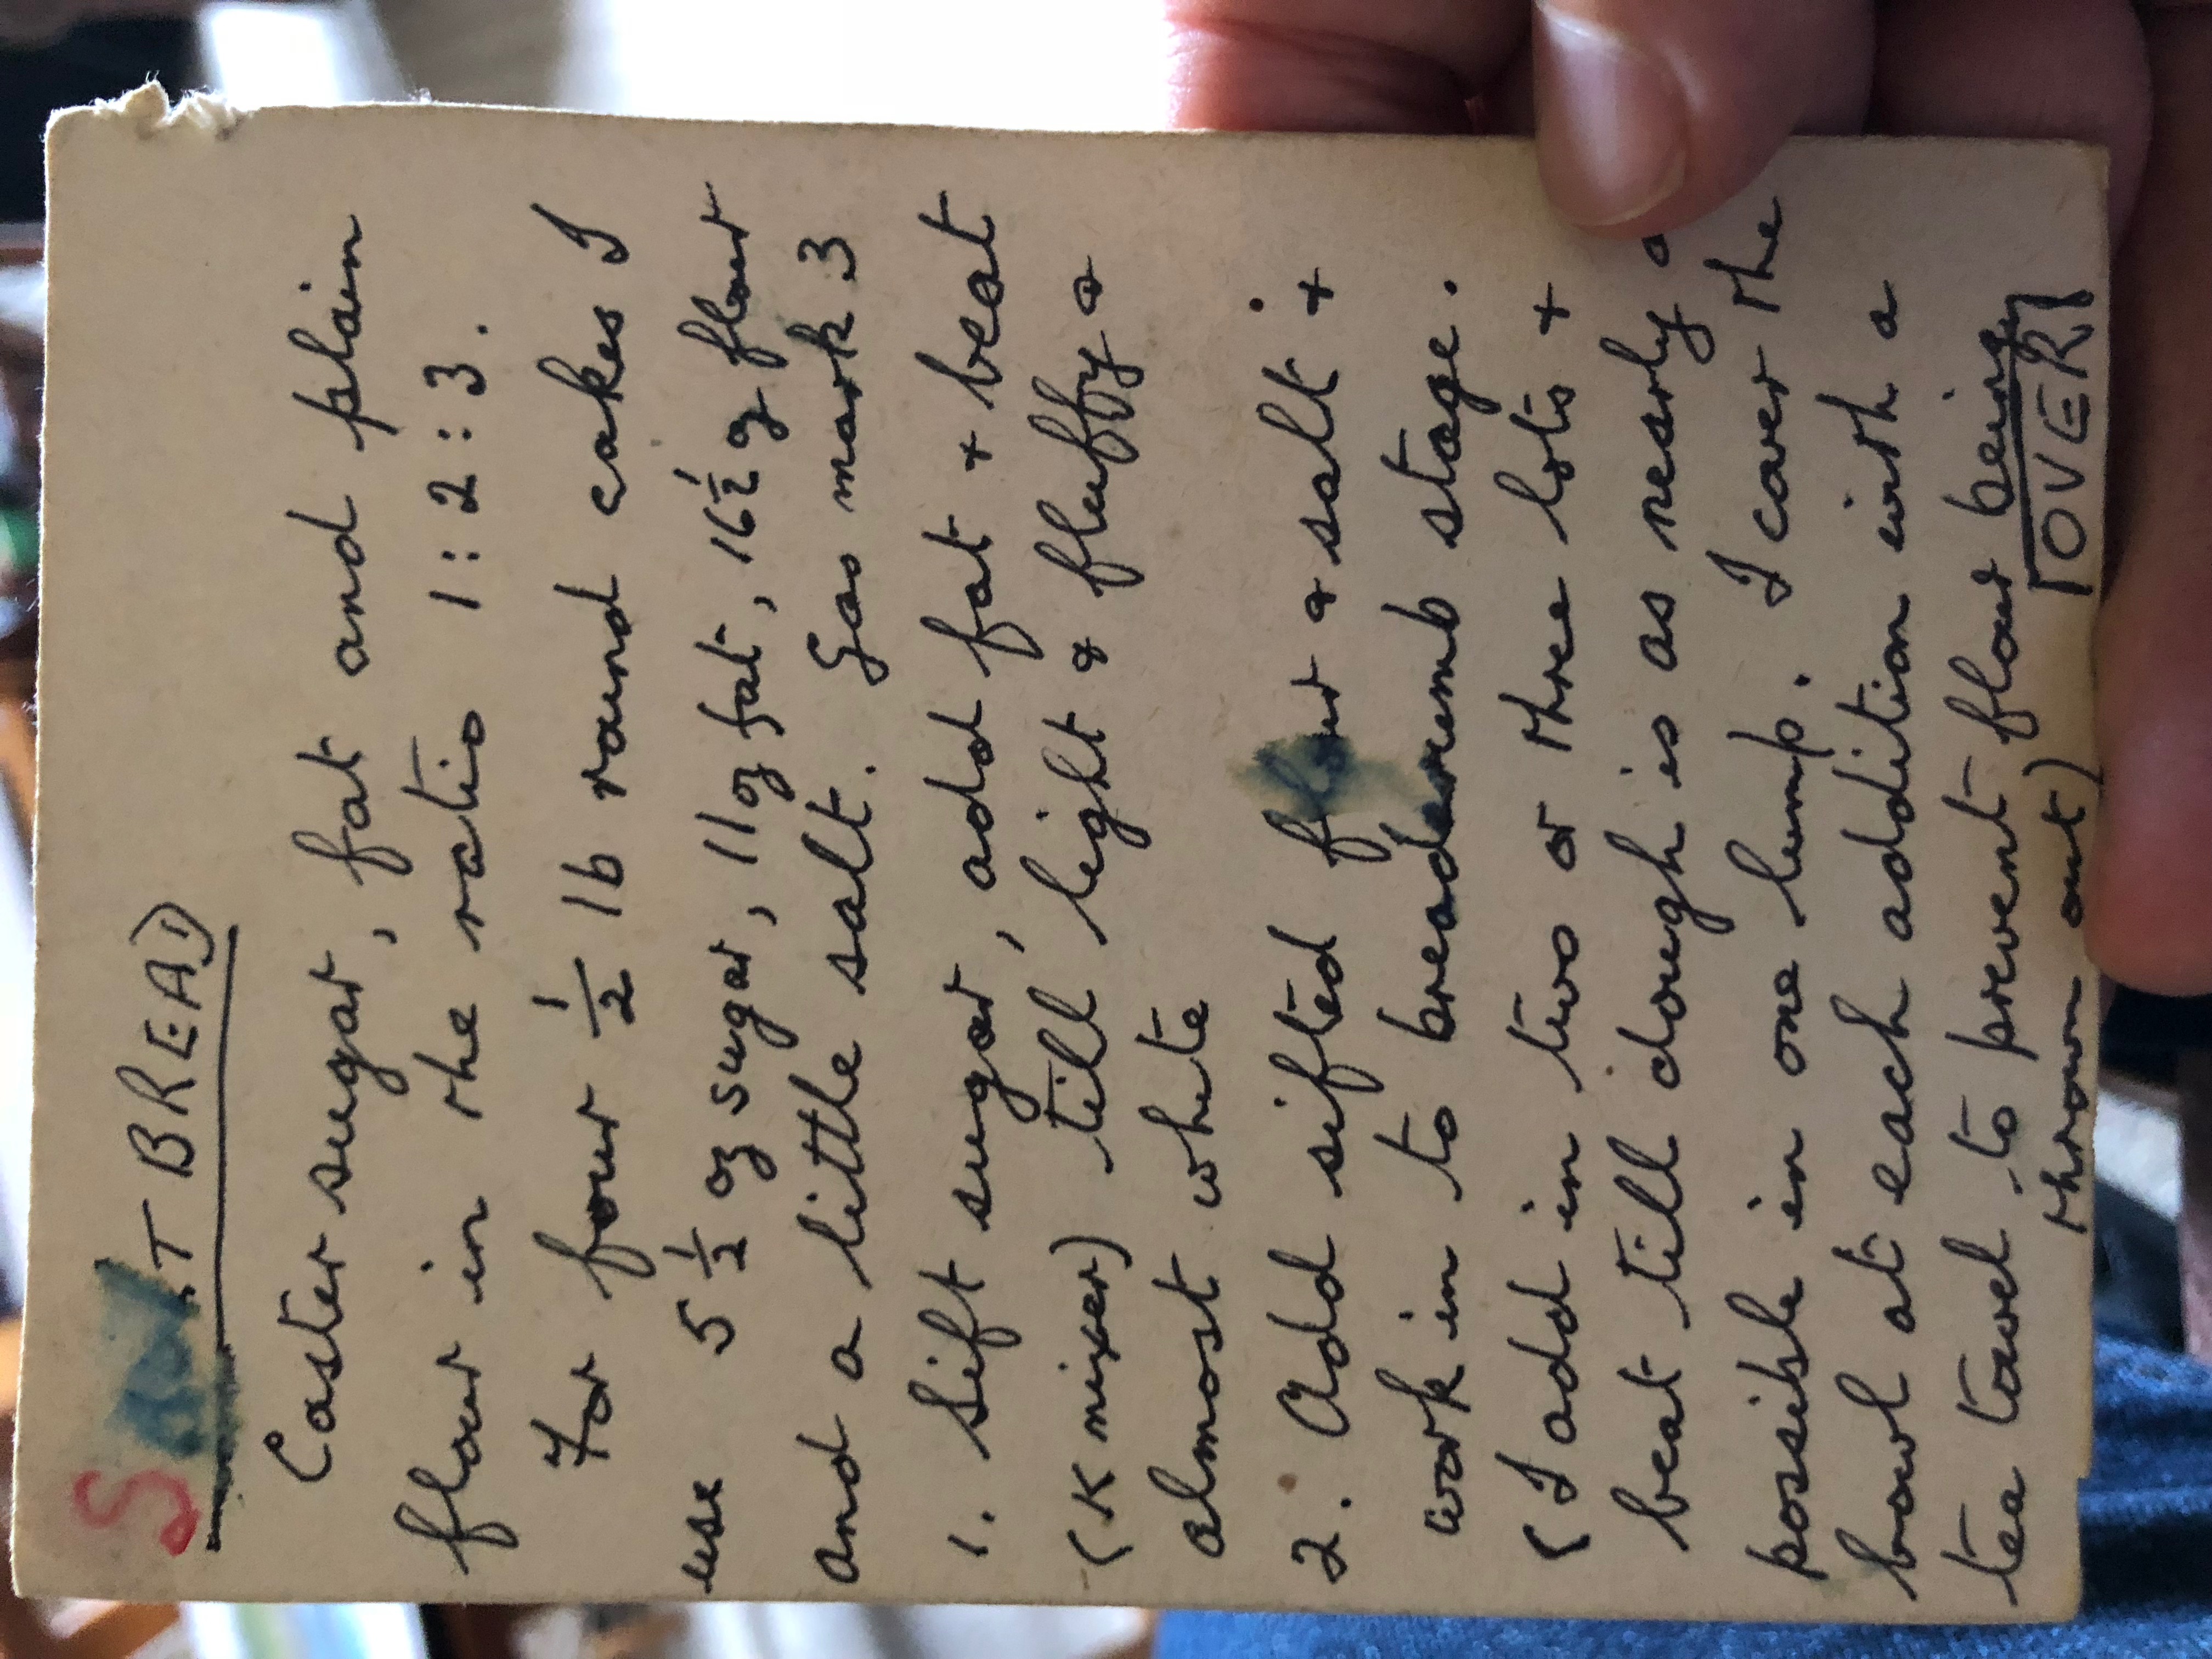 S T BREAD
Caster sugar, fat and plain
flour in the ratio 1:2:3.
For four ½ lb round cakes I
use 5½ oz sugar, 11 oz fat, 16½ oz flour
and a little salt. Gas mark 3
1. Sift sugar, add fat + beat
(K mixer) till light & fluffy &
almost white
2. Add sifted flour & salt +
work in to breadcrumb stage.
(I add in two or three lots +
beat till dough is as nearly
possible in one lump. I cover the
bowl at each addition with a
tea towel to prevent flour being
thrown out)
OVER